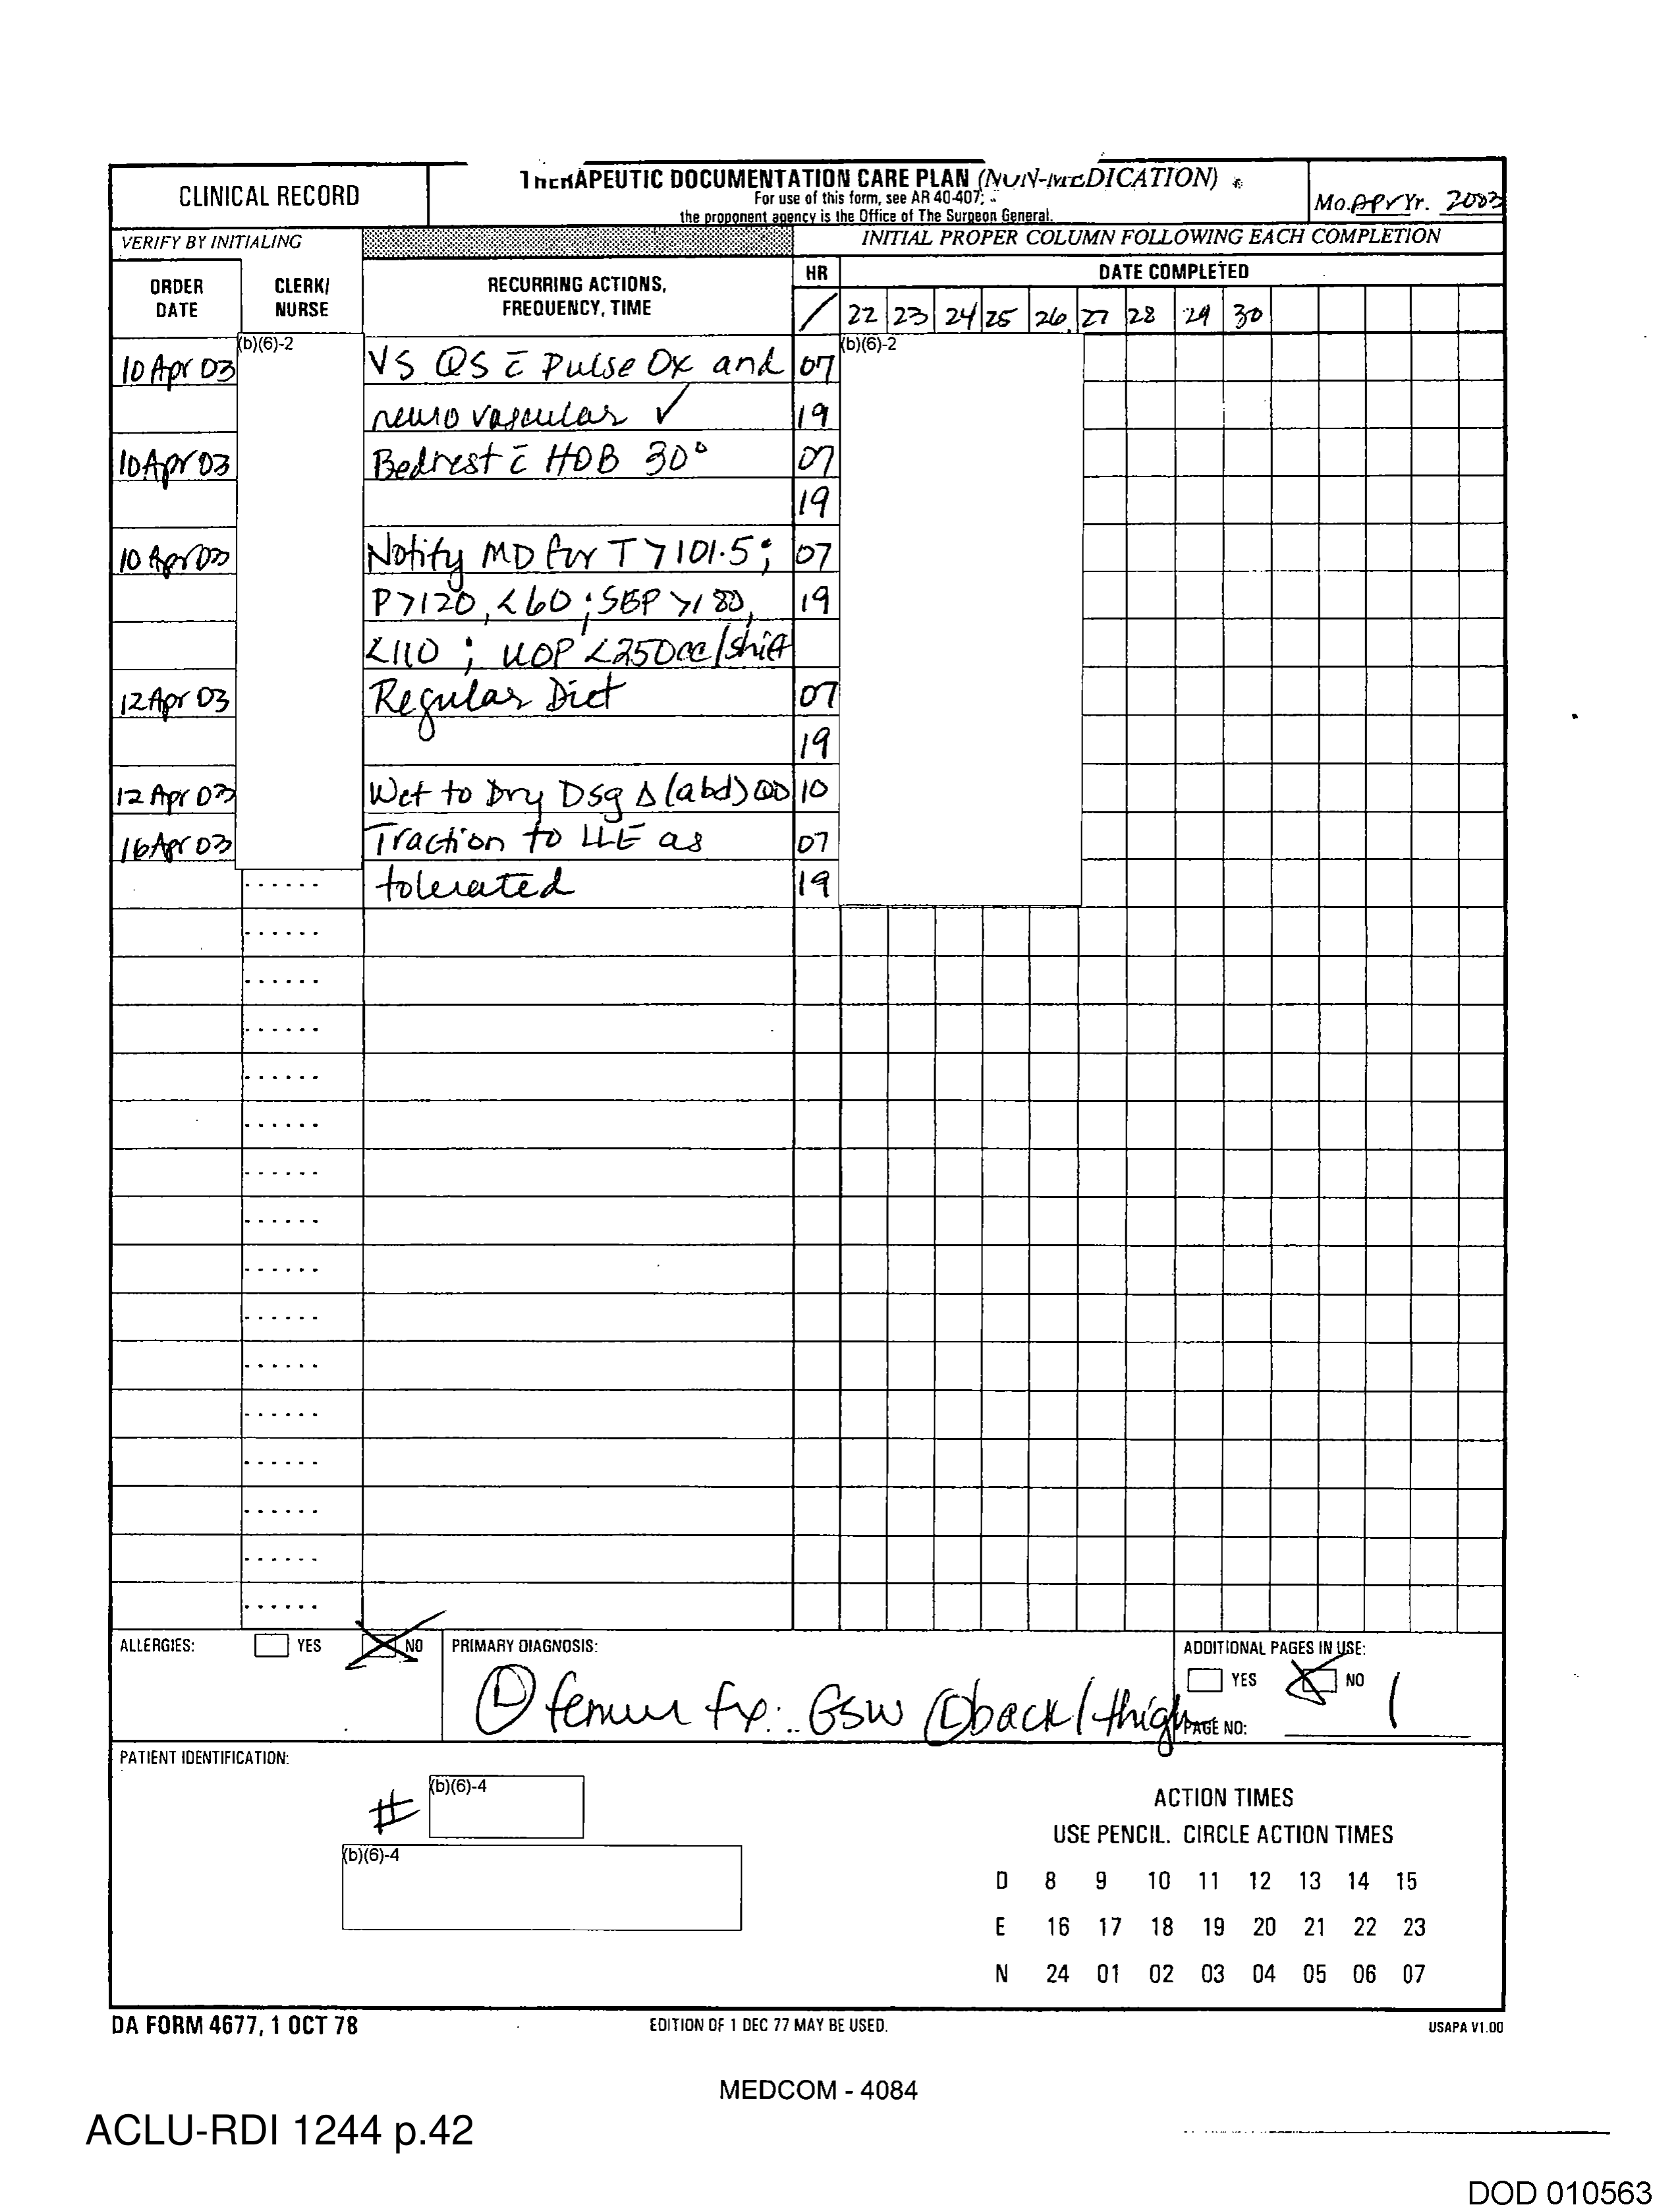 CLINICAL RECORD
THERAPEUTIC DOCUMENTATION CARE PLAN (NON-MEDICATION)
For use of this form, see AR 40-407;
the proponent agency is the Office of The Surgeon General.
Mo. Apr Yr. 2003
VERIFY BY INITIALING
INITIAL PROPER COLUMN FOLLOWING EACH COMPLETION
ORDER DATE
CLERK/ NURSE
RECURRING ACTIONS, FREQUENCY, TIME
HR
DATE COMPLETED
/ 22 23 24 25 26 27 28 29 30
(b)(6)-2
(b)(6)-2
10 Apr 03 VS QS c̄ Pulse Ox and 07
neurovascular ✓ 19
10 Apr 03 Bedrest c̄ HOB 30° 07
19
10 Apr 03 Notify MD for T >101.5; 07
P>120, <60; SBP >180, 19
<110; UOP <250cc/shift
12 Apr 03 Regular Diet 07
19
12 Apr 03 Wet to Dry Dsg Δ (abd) QD 10
16 Apr 03 Traction to LLE as 07
tolerated 19
ALLERGIES: YES NO
PRIMARY DIAGNOSIS:
Ⓛ femur fx: GSW Ⓛ back/thigh
ADDITIONAL PAGES IN USE:
YES NO
PAGE NO: 1
PATIENT IDENTIFICATION:
# (b)(6)-4
(b)(6)-4
ACTION TIMES
USE PENCIL. CIRCLE ACTION TIMES
D 8 9 10 11 12 13 14 15
E 16 17 18 19 20 21 22 23
N 24 01 02 03 04 05 06 07
DA FORM 4677, 1 OCT 78
EDITION OF 1 DEC 77 MAY BE USED.
USAPA V1.00
MEDCOM - 4084
ACLU-RDI 1244 p.42
DOD 010563